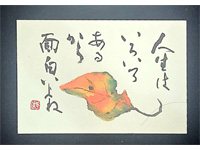 人生は
いろいろ
あるから
面白いよね